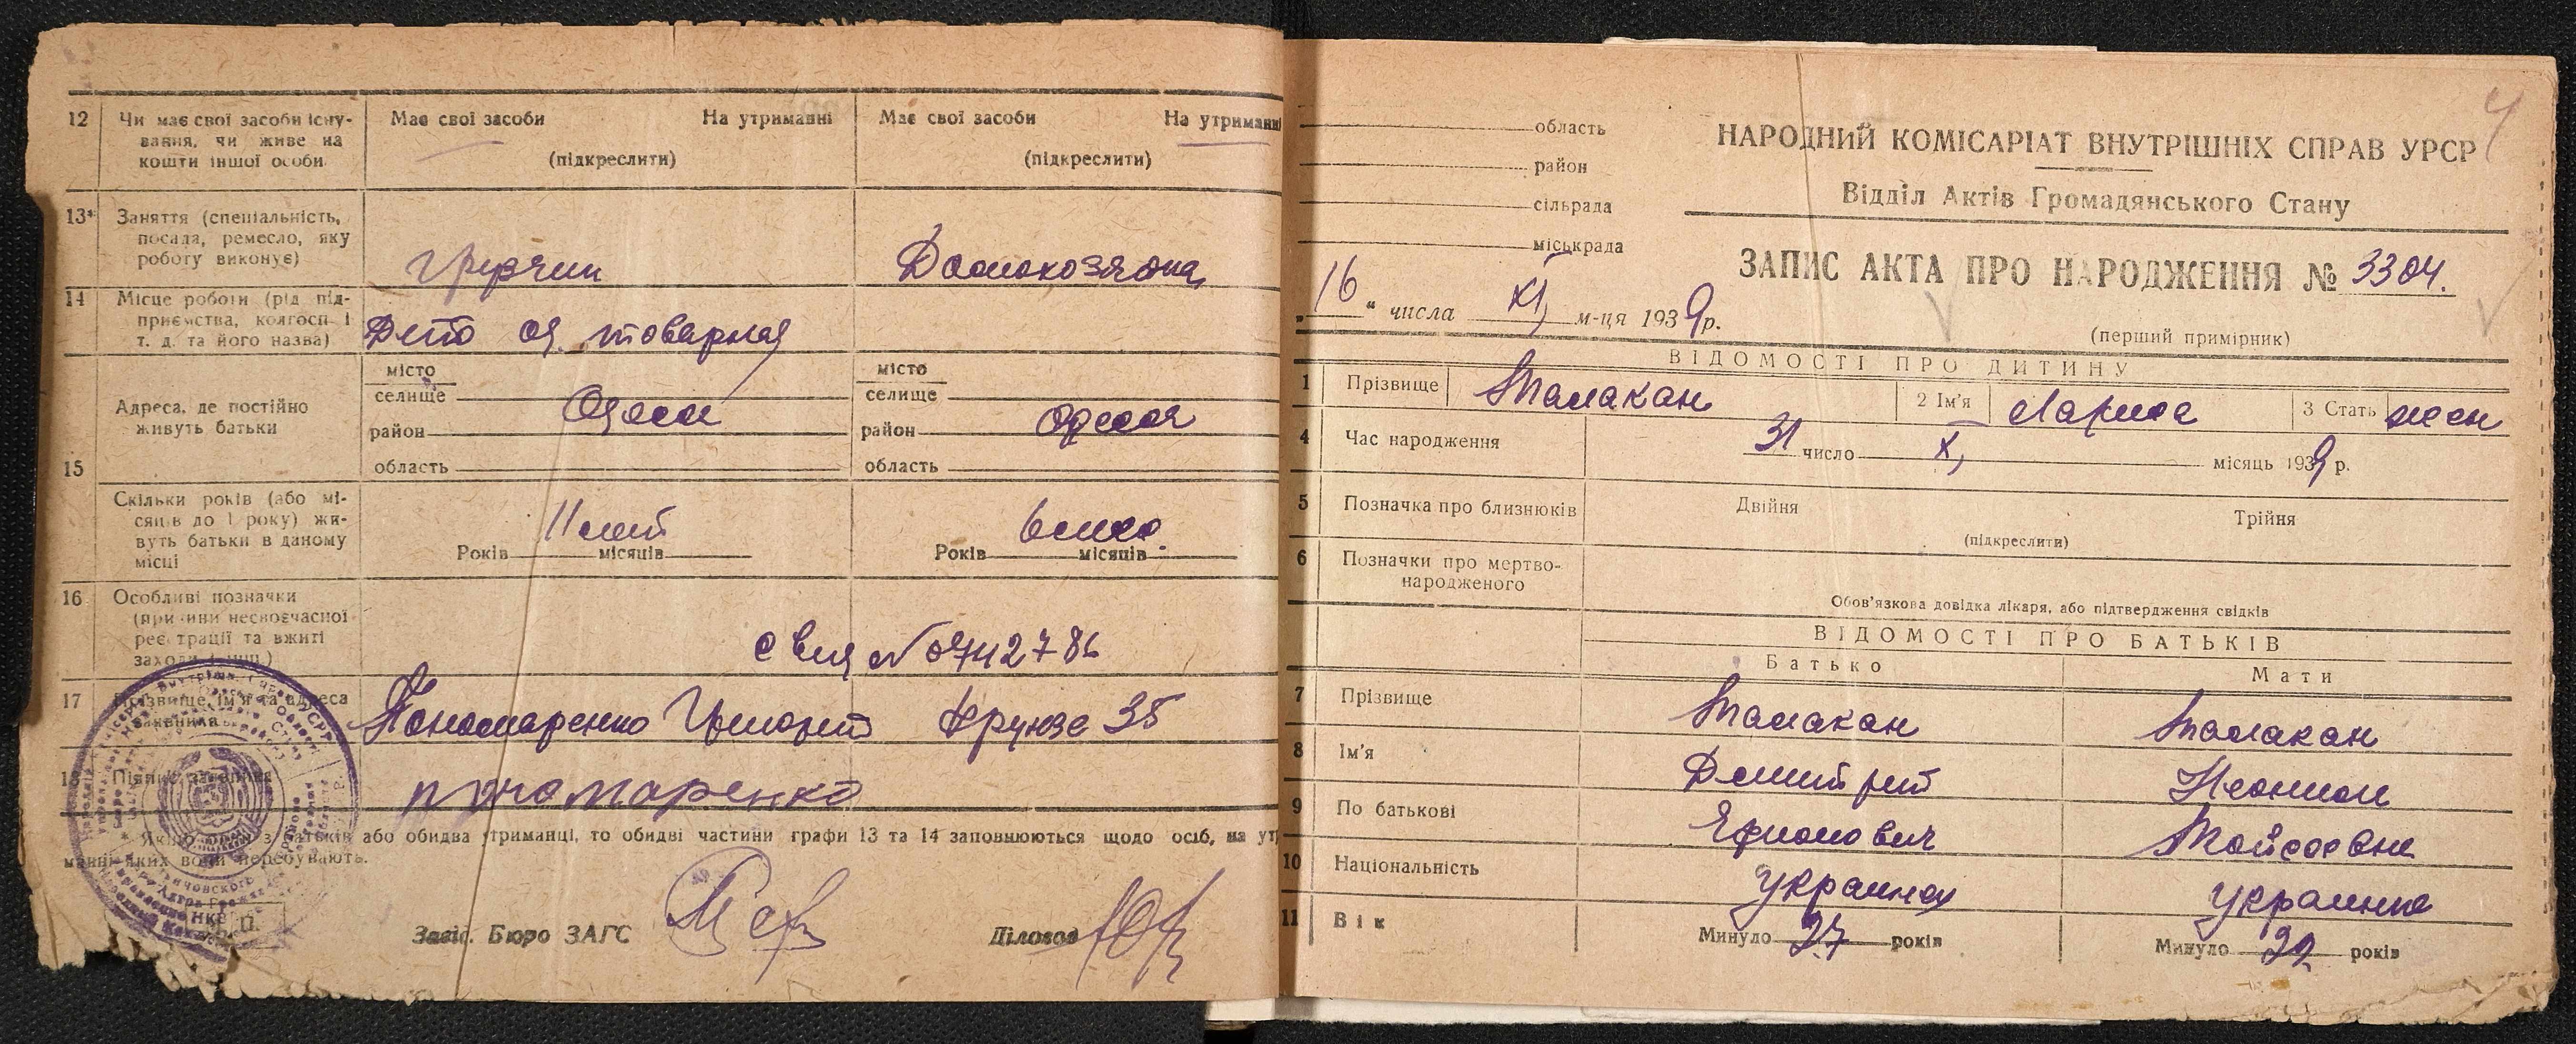 12 Чи має свої засоби існу-
вання, чи живе на
кошти іншої особи
Має свої засоби На утриманні
(підкреслити)
Має свої засоби На утриманні
(підкреслити)
13* Заняття (спеціальність,
посада, ремесло, яку
роботу виконує)
грузчик
Домохозяйка
14 Місце роботи (рід під-
приємства, колгосп і
т. д. та його назва)
Депо Од. товарная
15 Адреса, де постійно
живуть батьки
місто
селище
район
область
Одесса
місто
селище
район
область
Одесса
Скільки років (або мі-
сяців до 1 року) жи-
вуть батьки в даному
місці
11 лет
Років місяців
6 мес.
Років місяців
16 Особливі позначки
(причини несвоєчасної
реєстрації та вжиті
заходи і инш.)
17 Прізвище, ім'я та адреса
заявника
Пономаренко Фрунзе 35
18 Підпис заявника
пономаренко
* Якщо з батьків або обидва утриманці, то обидві частини графи 13 та 14 заповнюються щодо осіб, на ут
манні яких вони перебувають.
Завід. Бюро ЗАГС
Діловод
область
район
сільрада
міськрада
„16“ числа XI, м-ця 1939р.
НАРОДНИЙ КОМІСАРІАТ ВНУТРІШНІХ СПРАВ УРСР
Відділ Актів Громадянського Стану
ЗАПИС АКТА ПРО НАРОДЖЕННЯ № 3304.
(перший примірник)
ВІДОМОСТІ ПРО ДИТИНУ
1 Прізвище Талакан 2 Ім'я Лариса 3 Стать жен
4 Час народження 31 число X, місяць 1939 р.
5 Позначка про близнюків Двійня Трійня
(підкреслити)
6 Позначки про мертво-
народженого
Обов'язкова довідка лікаря, або підтвердження свідків
ВІДОМОСТІ ПРО БАТЬКІВ
Батько Мати
7 Прізвище Талакан Талакан
8 Ім'я Дмитрий
9 По батькові Ефимович Мойсеевна
10 Національність украинец украинка
11 Вік Минуло 27 років Минуло років